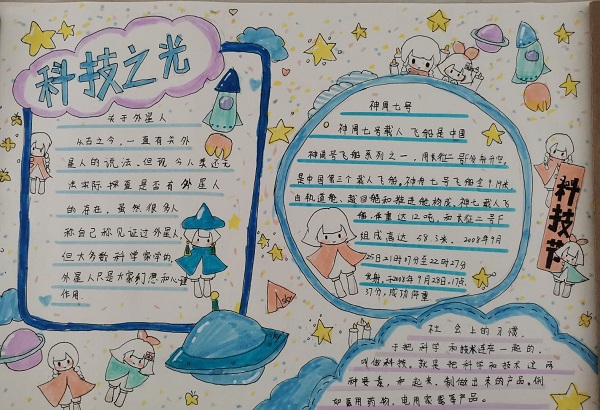 科技之光
关于外星人
从古之今，一直有关外
星人的说法，但现今人类还无
法实际探查是否有外星人
的存在，虽然很多人
称自己称见证过外星人
但大多数科学家学的，
外星人只是大家幻想和心理
作用。
神周七号
神周七号载人飞船是中国
神周号飞船系列之一，用长征二号F发射升空，
是中国第三个载人飞船。神舟七号飞船全长9.19米
由轨道舱、返回舱和推进舱构成，神七载人飞
船，体重达12吨，和长征二号F
组成高达58.3米。2008年9月
25日21时07分至22时27分
发射，于2008年9月28日，17点
37分，成功降落
科技节
社会上的习惯，
于把科学和技术连在一起的，
叫做科技。就是把科学和技术这两
种要素，和起来，制做出来的产品，例
如医用药物，电用家电等产品。